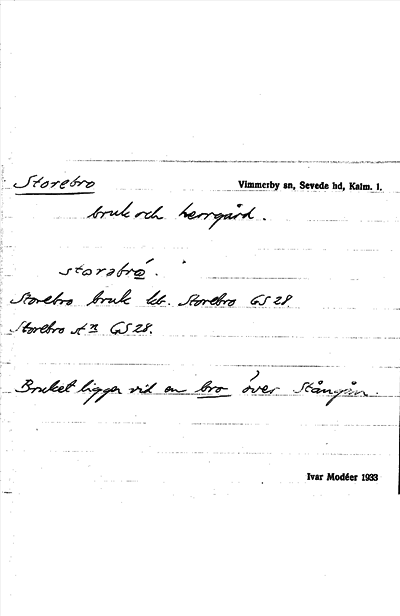 Storebro Vimmerby sn, Sevede hd, Kalm. l.
bruk och herrgård.
storabro.
Storebro bruk hb. Storebro GS 28.
Storebro stn GS 28.
Bruket ligger vid en bro över Stångån.
Ivar Modéer 1933